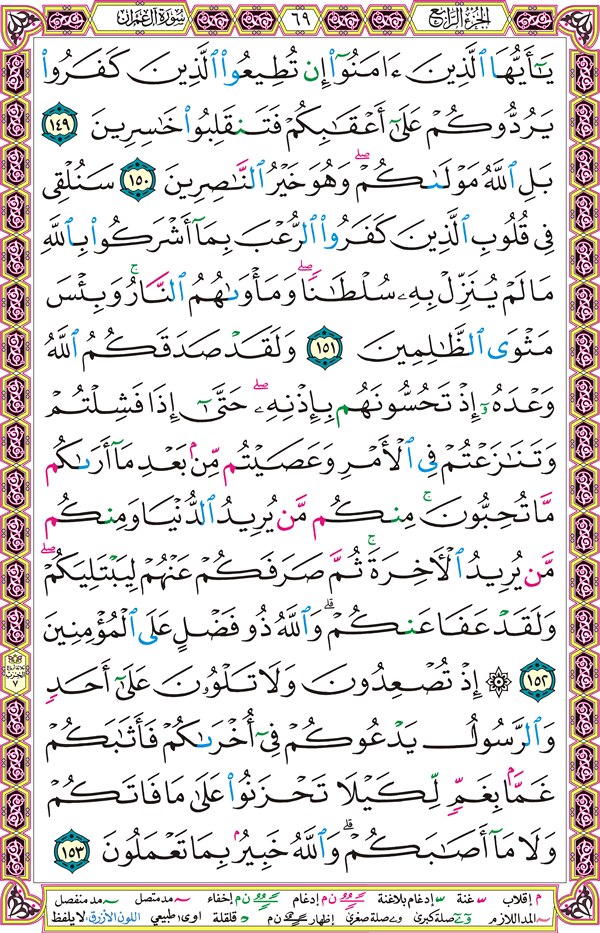 الجزء الرابع ٦٩ سورة آل عمران
يَٰٓأَيُّهَا ٱلَّذِينَ ءَامَنُوٓا۟ إِن تُطِيعُوا۟ ٱلَّذِينَ كَفَرُوا۟
يَرُدُّوكُمْ عَلَىٰٓ أَعْقَٰبِكُمْ فَتَنقَلِبُوا۟ خَٰسِرِينَ ١٤٩
بَلِ ٱللَّهُ مَوْلَىٰكُمْ ۖ وَهُوَ خَيْرُ ٱلنَّٰصِرِينَ ١٥٠ سَنُلْقِى
فِى قُلُوبِ ٱلَّذِينَ كَفَرُوا۟ ٱلرُّعْبَ بِمَآ أَشْرَكُوا۟ بِٱللَّهِ
مَا لَمْ يُنَزِّلْ بِهِۦ سُلْطَٰنًا ۖ وَمَأْوَىٰهُمُ ٱلنَّارُ ۚ وَبِئْسَ
مَثْوَى ٱلظَّٰلِمِينَ ١٥١ وَلَقَدْ صَدَقَكُمُ ٱللَّهُ
وَعْدَهُۥٓ إِذْ تَحُسُّونَهُم بِإِذْنِهِۦ ۖ حَتَّىٰٓ إِذَا فَشِلْتُمْ
وَتَنَٰزَعْتُمْ فِى ٱلْأَمْرِ وَعَصَيْتُم مِّنۢ بَعْدِ مَآ أَرَىٰكُم
مَّا تُحِبُّونَ ۚ مِنكُم مَّن يُرِيدُ ٱلدُّنْيَا وَمِنكُم
مَّن يُرِيدُ ٱلْءَاخِرَةَ ۚ ثُمَّ صَرَفَكُمْ عَنْهُمْ لِيَبْتَلِيَكُمْ ۖ
وَلَقَدْ عَفَا عَنكُمْ ۗ وَٱللَّهُ ذُو فَضْلٍ عَلَى ٱلْمُؤْمِنِينَ
١٥٢ ۞ إِذْ تُصْعِدُونَ وَلَا تَلْوُۥنَ عَلَىٰٓ أَحَدٍ
وَٱلرَّسُولُ يَدْعُوكُمْ فِىٓ أُخْرَىٰكُمْ فَأَثَٰبَكُمْ
غَمًّۢا بِغَمٍّ لِّكَيْلَا تَحْزَنُوا۟ عَلَىٰ مَا فَاتَكُمْ
وَلَا مَآ أَصَٰبَكُمْ ۗ وَٱللَّهُ خَبِيرٌۢ بِمَا تَعْمَلُونَ ١٥٣
م إقلاب غنة إدغام بلاغنة ن م إدغام ن م إخفاء مد متصل مد منفصل
المد اللازم صلة كبرى صلة صغرى إظهار ن م قلقلة اوى؛ طبيعي اللون الأزرق: لا يلفظ